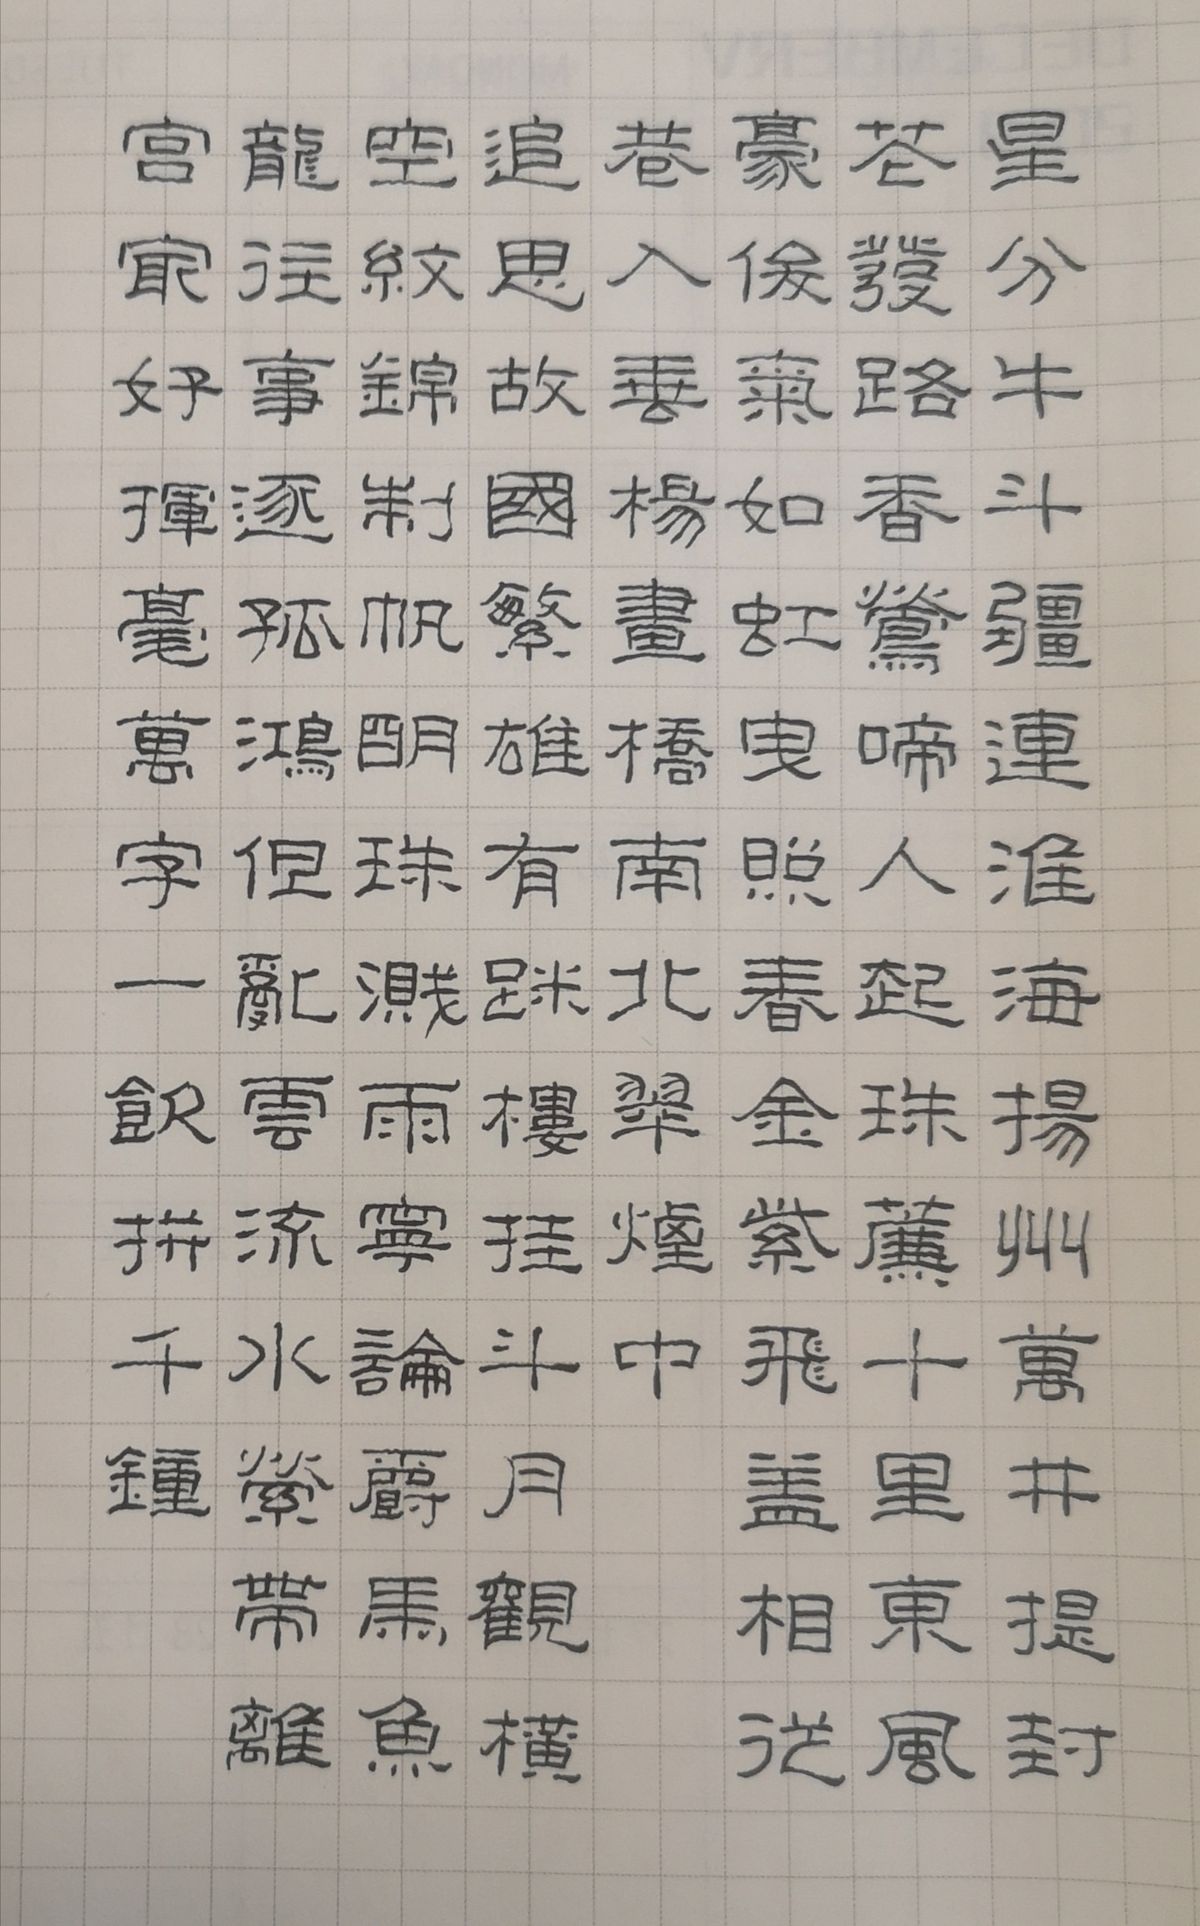 星分牛斗疆連淮海揚州萬井提封
花發路香鶯啼人起珠簾十里東風
豪俊氣如虹曳照春金紫飛盖相從
巷入垂楊畫橋南北翠煙中
追思故國繁雄有迷樓挂斗月觀橫
空紋錦制帆明珠濺雨寧論爵馬魚
龍往事逐孤鴻但亂雲流水縈帶離
宮冣好揮毫萬字一飲拼千鍾